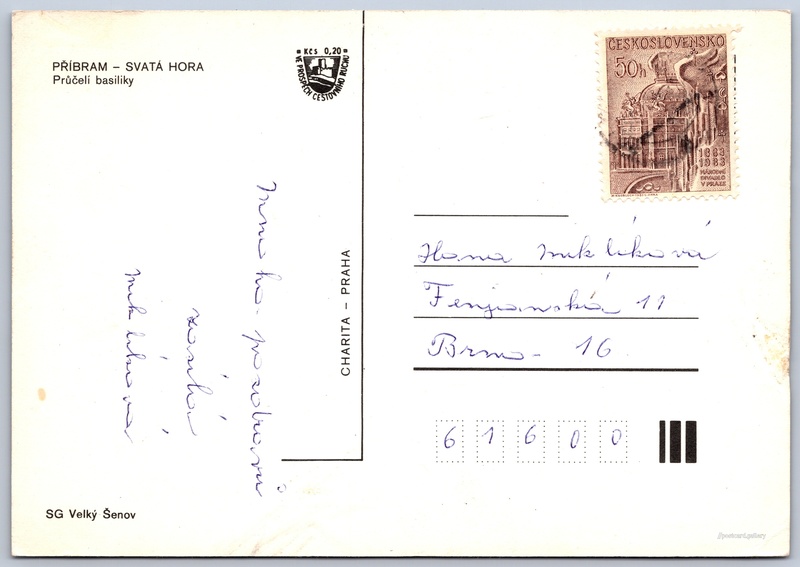 PŘÍBRAM – SVATÁ HORA
Průčelí basiliky
Kčs 0,20
VE PROSPĚCH CESTOVNÍHO RUCHU
ČESKOSLOVENSKO
50h
1883
1983
NÁRODNÍ
DIVADLO
V PRAZE
Mnoho pozdravů
zasílá
CHARITA – PRAHA
Hana
11
Brno - 16
61600
SG Velký Šenov
//postcard.gallery